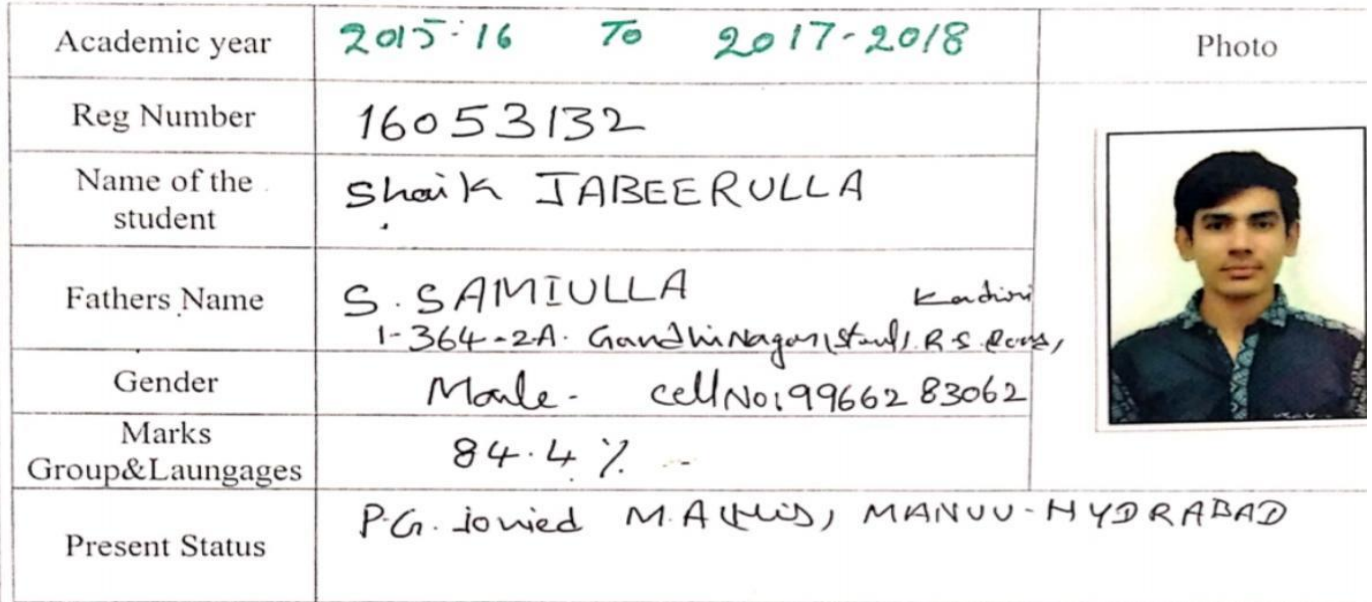 Academic year 2015-16 To 2017-2018 Photo
Reg Number 16053132
Name of the student Shaik JABEERULLA
Fathers Name S. SAMIULLA Kadiri
1-364-2A. Gandhi Nagar R.S.
Gender Male - cell No: 99662 83062
Marks
Group&Laungages 84.4 %
Present Status P.G. jonied M.A (His), MANUU-HYDRABAD